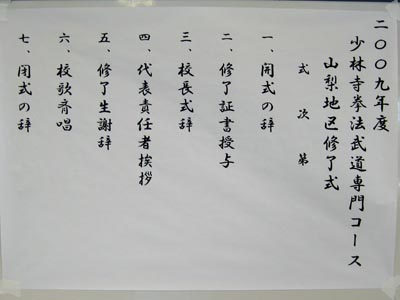 二〇〇九年度
少林寺拳法武道専門コース
山梨地区修了式
式次第
一、開式の辞
二、修了証書授与
三、校長式辞
四、代表責任者挨拶
五、修了生謝辞
六、校歌斉唱
七、閉式の辞